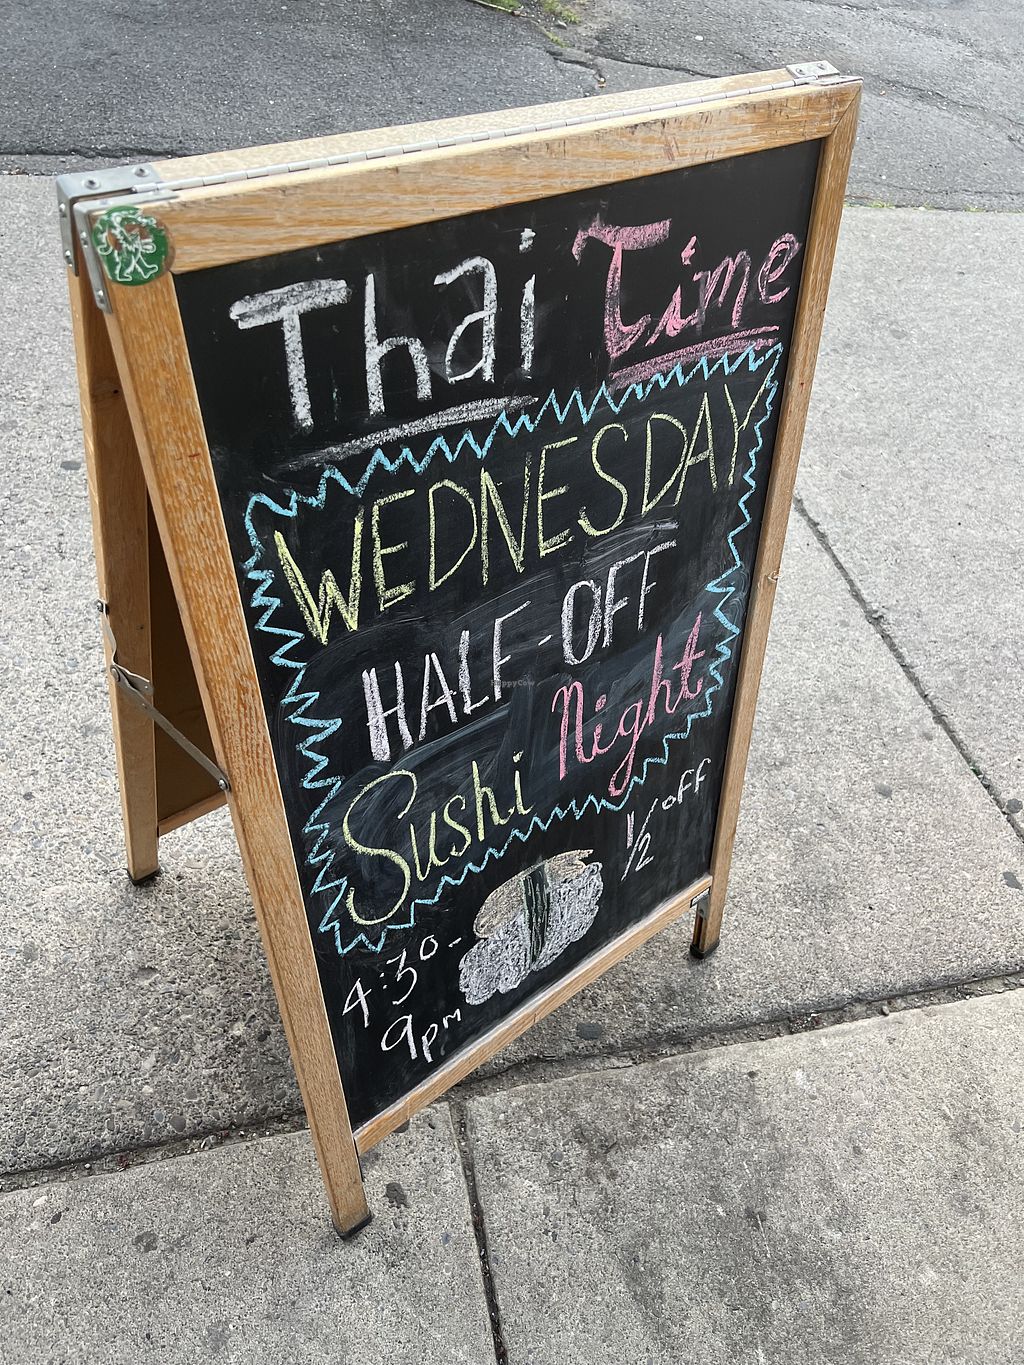 Thai Time
WEDNESDAY
HALF-OFF
Sushi Night
1/2 off
4:30-
9pm
HappyCow